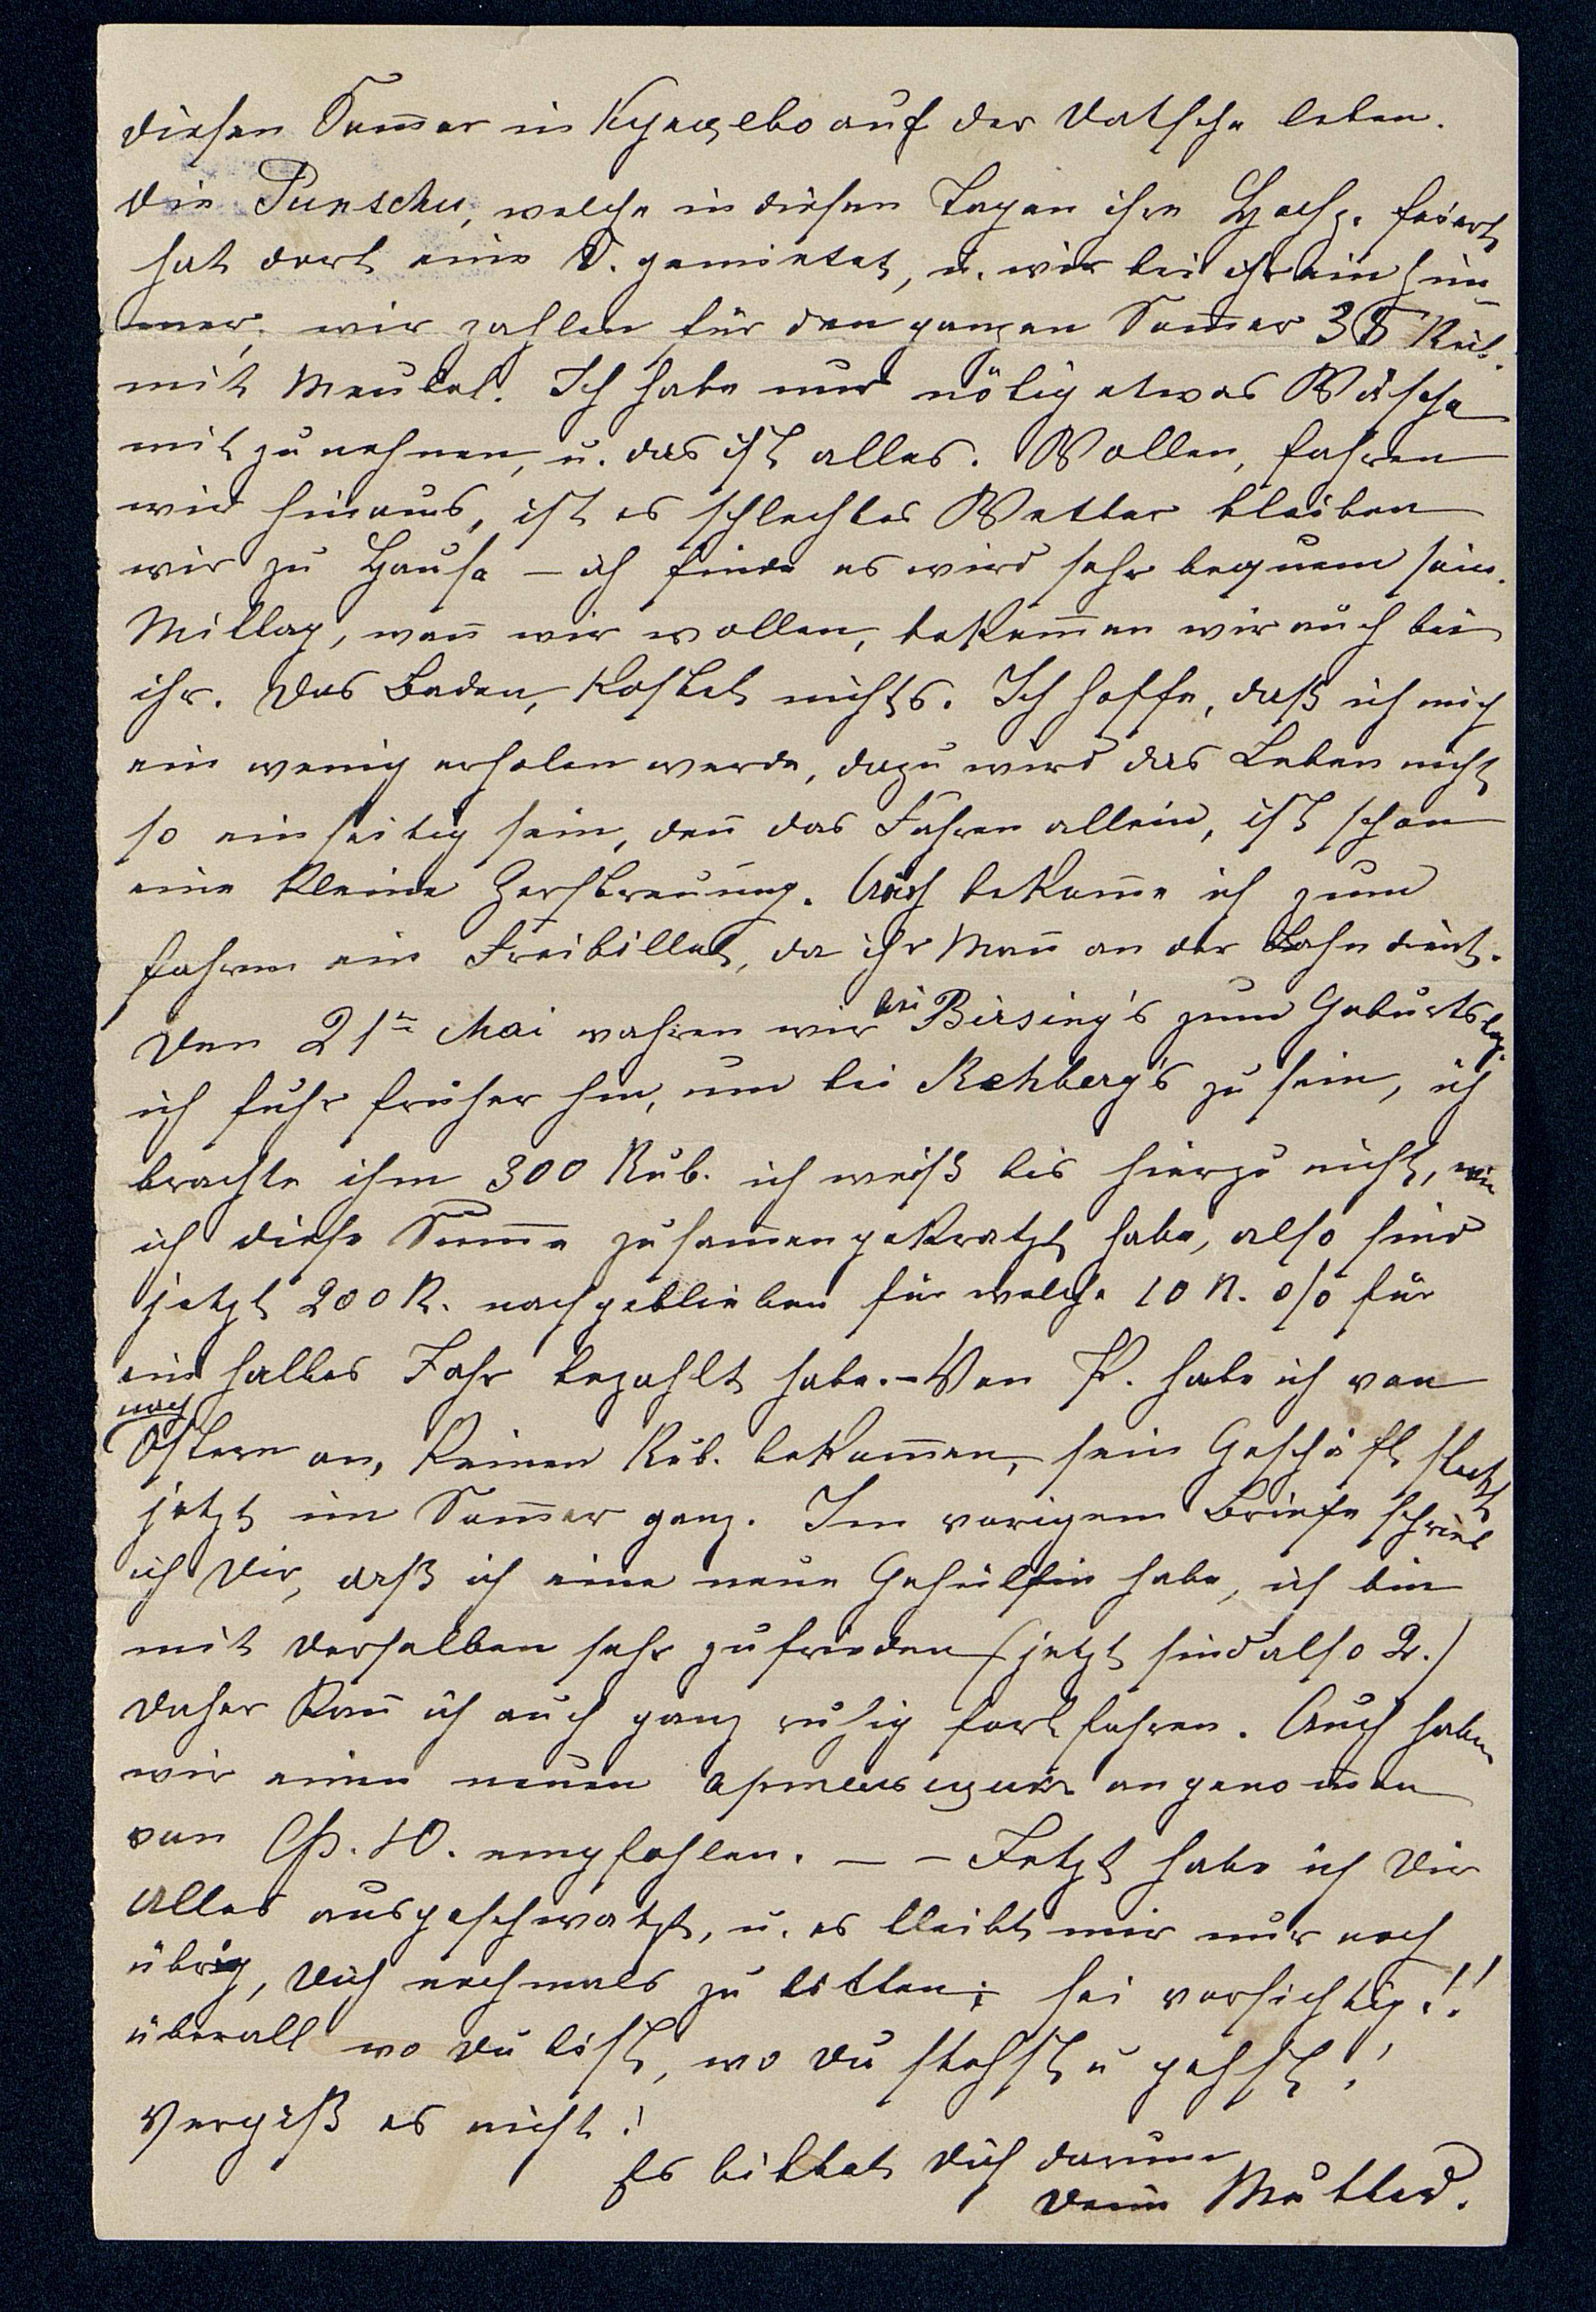 diesen Sommer in Кунцево auf der Datsche leben.
Die Punschu, welche in diesen Tagen ihre Hochz. feiert,
hat dort eine D. gemietet, u. wir bei ihr ein Zim-
mer, wir zahlen für den ganzen Sommer 35 Rub.
mit Meubel. Ich habe nur nötig etwas Wäsche
mit zu nehmen, u. das ist alles. Wollen, fahren
wir hinaus, ist es schlechtes Wetter bleiben
wir zu Hause – ich finde es wird sehr bequem sein.
Mittag, wenn wir wollen, bekommen wir auch bei
ihr. Das Baden, kostet nichts. Ich hoffe, daß ich mich
ein wenig erholen werde, dazu wird das Leben nicht
so einseitig sein, denn das Fahren allein, ist schon
eine kleine Zerstreuung. Auch bekomme ich zum
fahren ein Freibillet, da ihr Mann an der Bahn dient.
Den 21ten Mai wahren wir bei Birsing's zum Geburtstag.
ich fuhr früher hin, um bei Rehberg's zu sein, ich
brachte ihm 300 Rub. ich weiß bis hierzu nicht, wie
ich diese Summe zusammengekratzt habe, also sind
jetzt 200 R. nachgeblieben für welche 10 R. % für
ein halbes Jahr bezahlt habe. – Von P. habe ich von
nach
Ostern an, keinen Rub. bekommen, sein Geschäft steht
jetzt im Sommer ganz. Im vorigem Briefe schrieb
ich Dir, daß ich eine neue Gehülfin habe, ich bin
mit derselben sehr zufrieden (jetzt sind also 2.)
Daher kann ich auch ganz ruhig fortfahren. Auch haben
wir einen neuen артельщикъ angenommen
von Ф. Ю. empfohlen. – – Jetzt habe ich Dir
alles ausgeschwatzt, u. es bleibt mir nur noch
übrig, Dich nochmals zu bitten; sei vorsichtig!!
überall wo Du bist, wo Du stehst u gehst!
Vergiß es nicht!
Es bittet Dich darum
Deine Mutter.